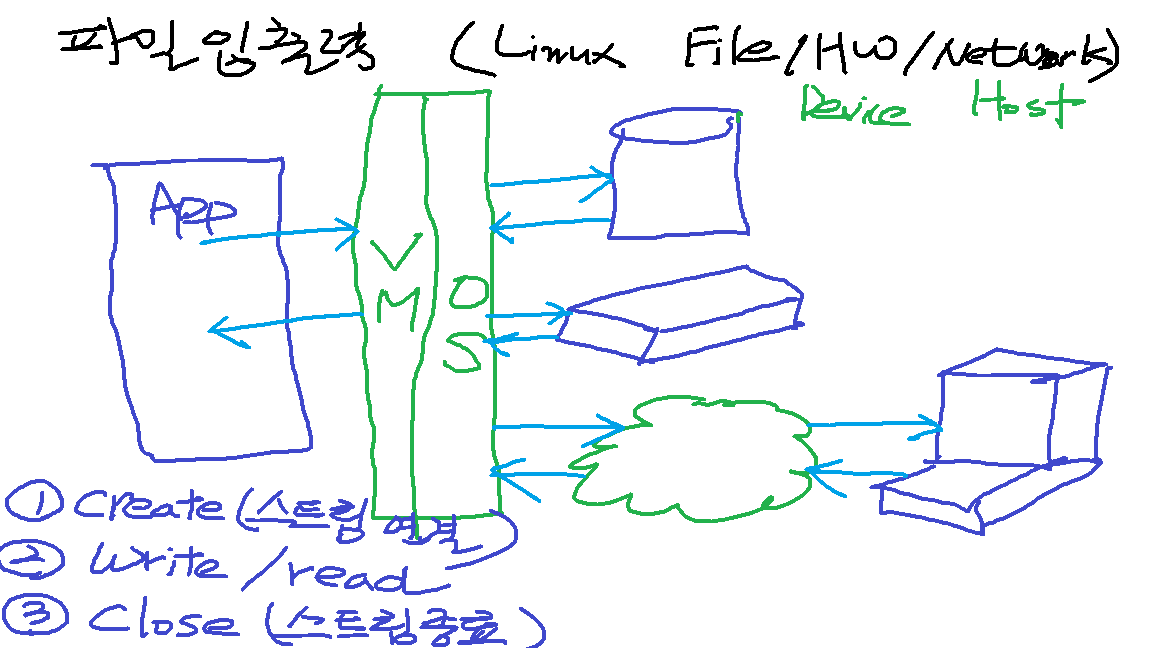 파일 입출력 (Linux File/HW/Network)
Device Host
App
VM
OS
① Create (스트림 연결)
② Write/read
③ Close (스트림종료)